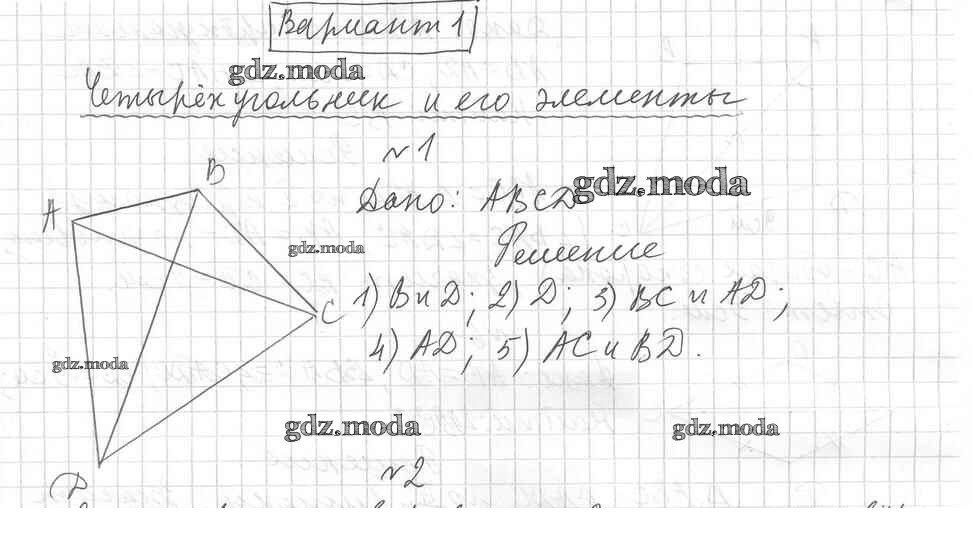 Вариант 1
gdz.moda
Четырёхугольник и его элементы
№1
B
A
Дано: ABCD
gdz.moda
Решение
gdz.moda
1) B и D; 2) D; 3) BC и AD;
C
4) AD; 5) AC и BD.
gdz.moda
gdz.moda
gdz.moda
№2
D